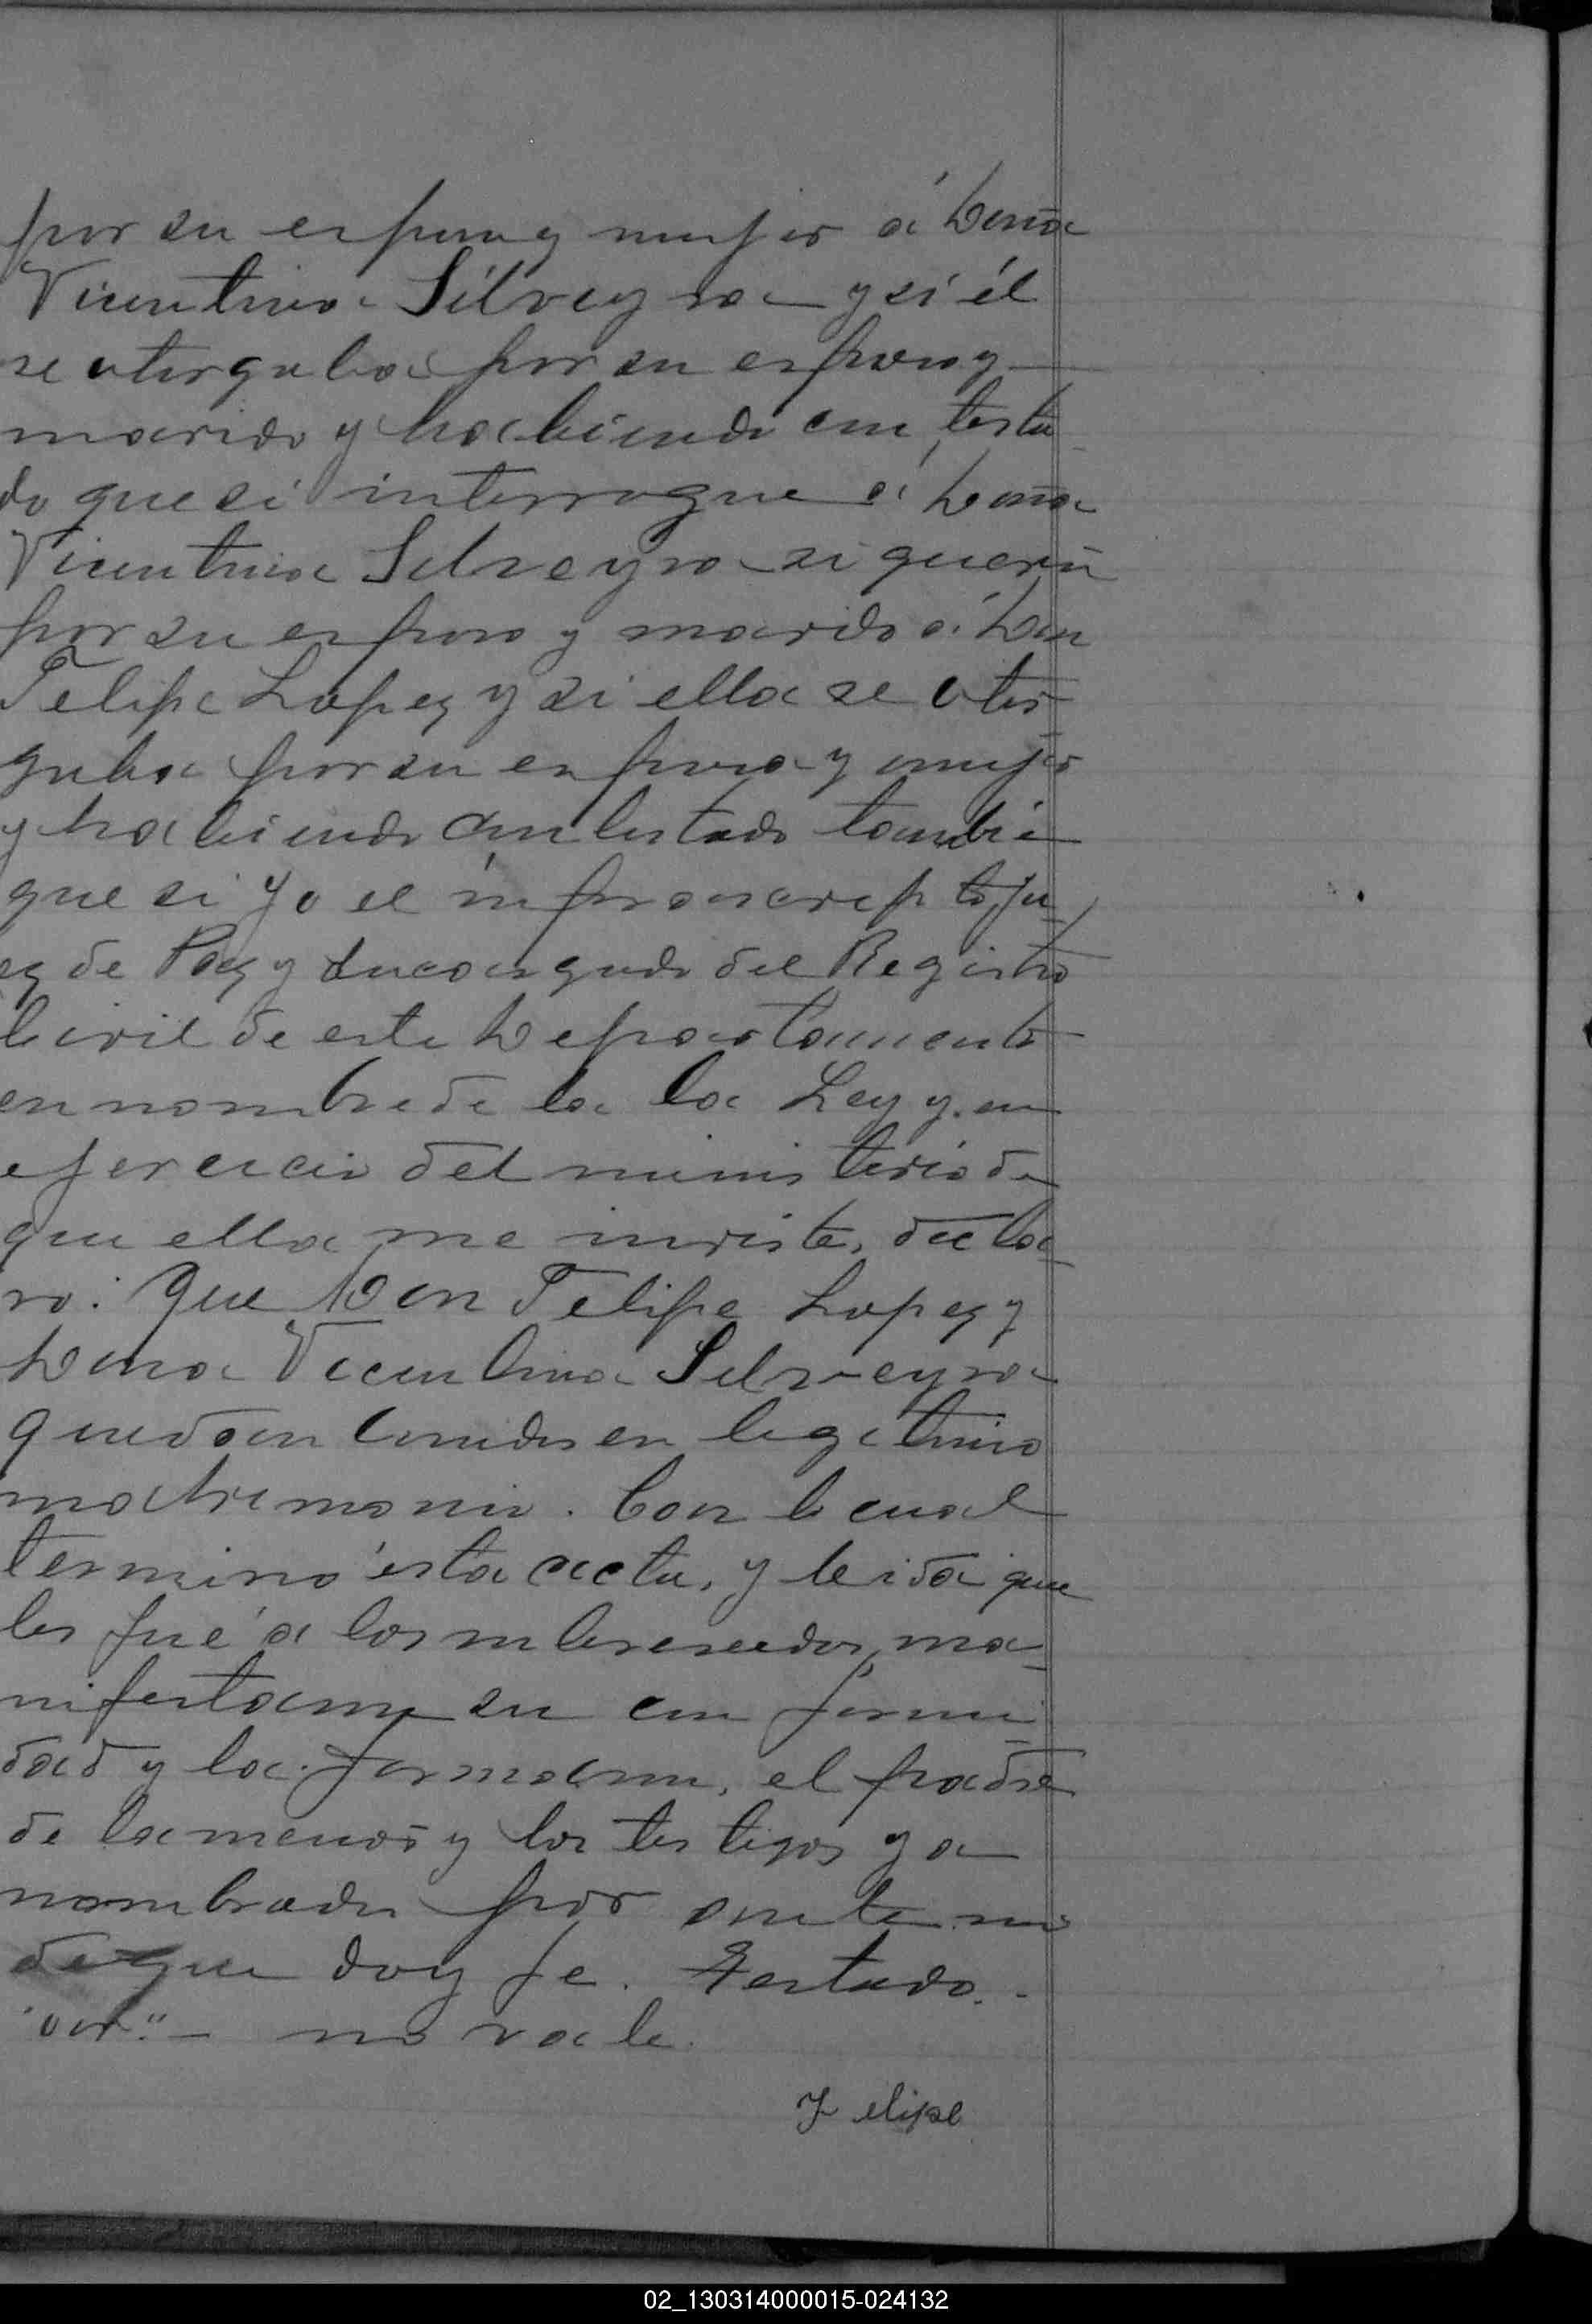 por su esposa y mujer á Doña
Vicentina Silveyra y si él
se otorgaba por su esposo y
marido y habiendo contesta
do que si interrogue á Doña
Vicentina Silveyra si queria
por su esposo y marido á Don
Felipe Lopez y si ella se otor
gaba por su esposa y mujer
y habiendo contestado tambien
que si Yo el infrascripto Ju
ez de Paz y Encargado del Registro
Civil de este Departamento
en nombre de la la Ley y en
ejercicio del ministerio de
que ella me inviste, decla
ro: Que Don Felipe Lopez y
Dona Vicentina Silveyra
quedan unidos en legitimo
matrimonio. Con lo cual
terminó esta acta, y leida que
les fué a los interesados, ma
nifestaron su conformi
dad y la firmaron, el padre
de la menor y los testigos ya
nombrados por ante mi
de que doy fe. Testado.-
"por" - no vale.
Felipe
02_130314000015-024132